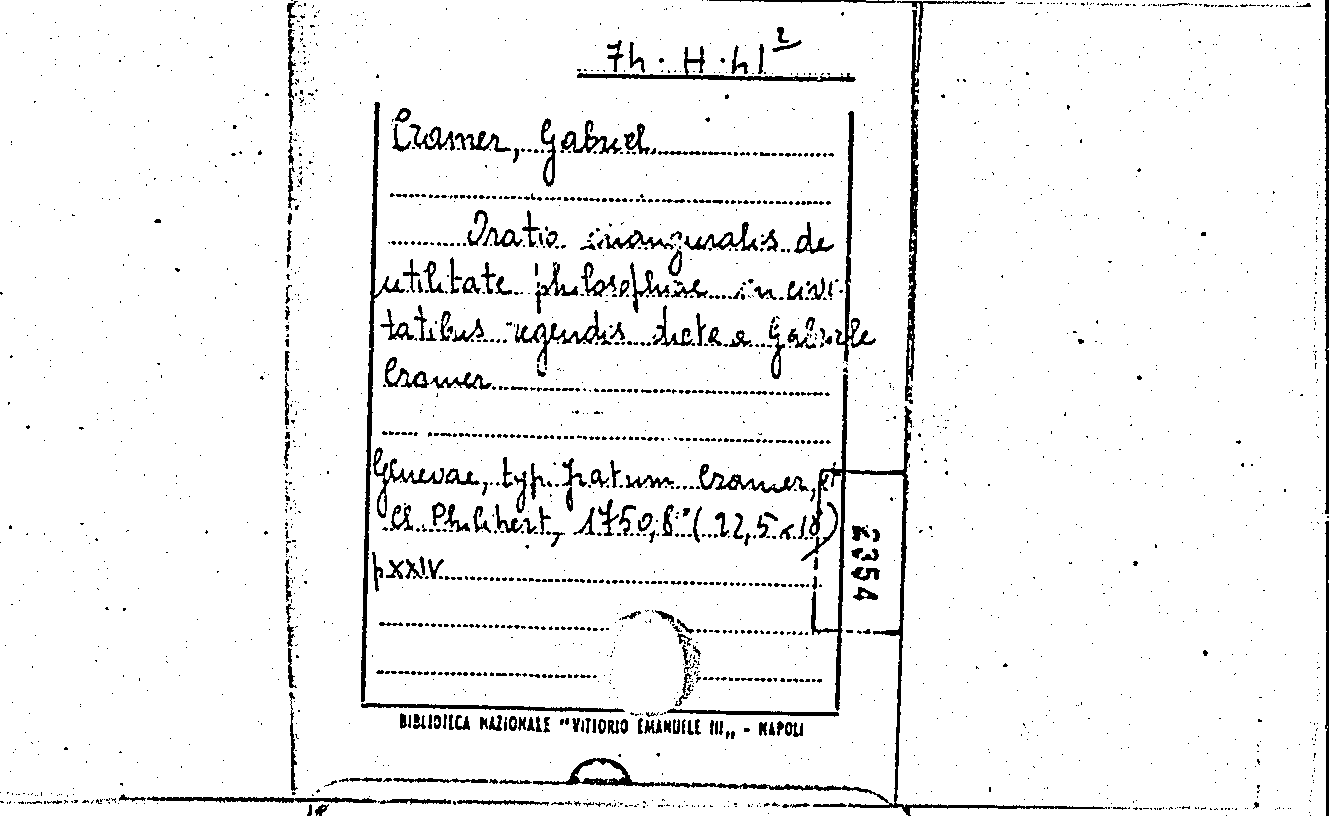 7h. H. h1²
Cramer, Gabriel
Oratio inauguralis de
utilitate philosophiae in civi-
tatibus regendis dicta a Gabriele
Cramer
Genevae, typ. fratrum Cramer, et
Cl. Philibert, 1750, 8° (22,5 x 18)
p XXIV
2354
BIBLIOTECA NAZIONALE "VITTORIO EMANUELE III„ - NAPOLI